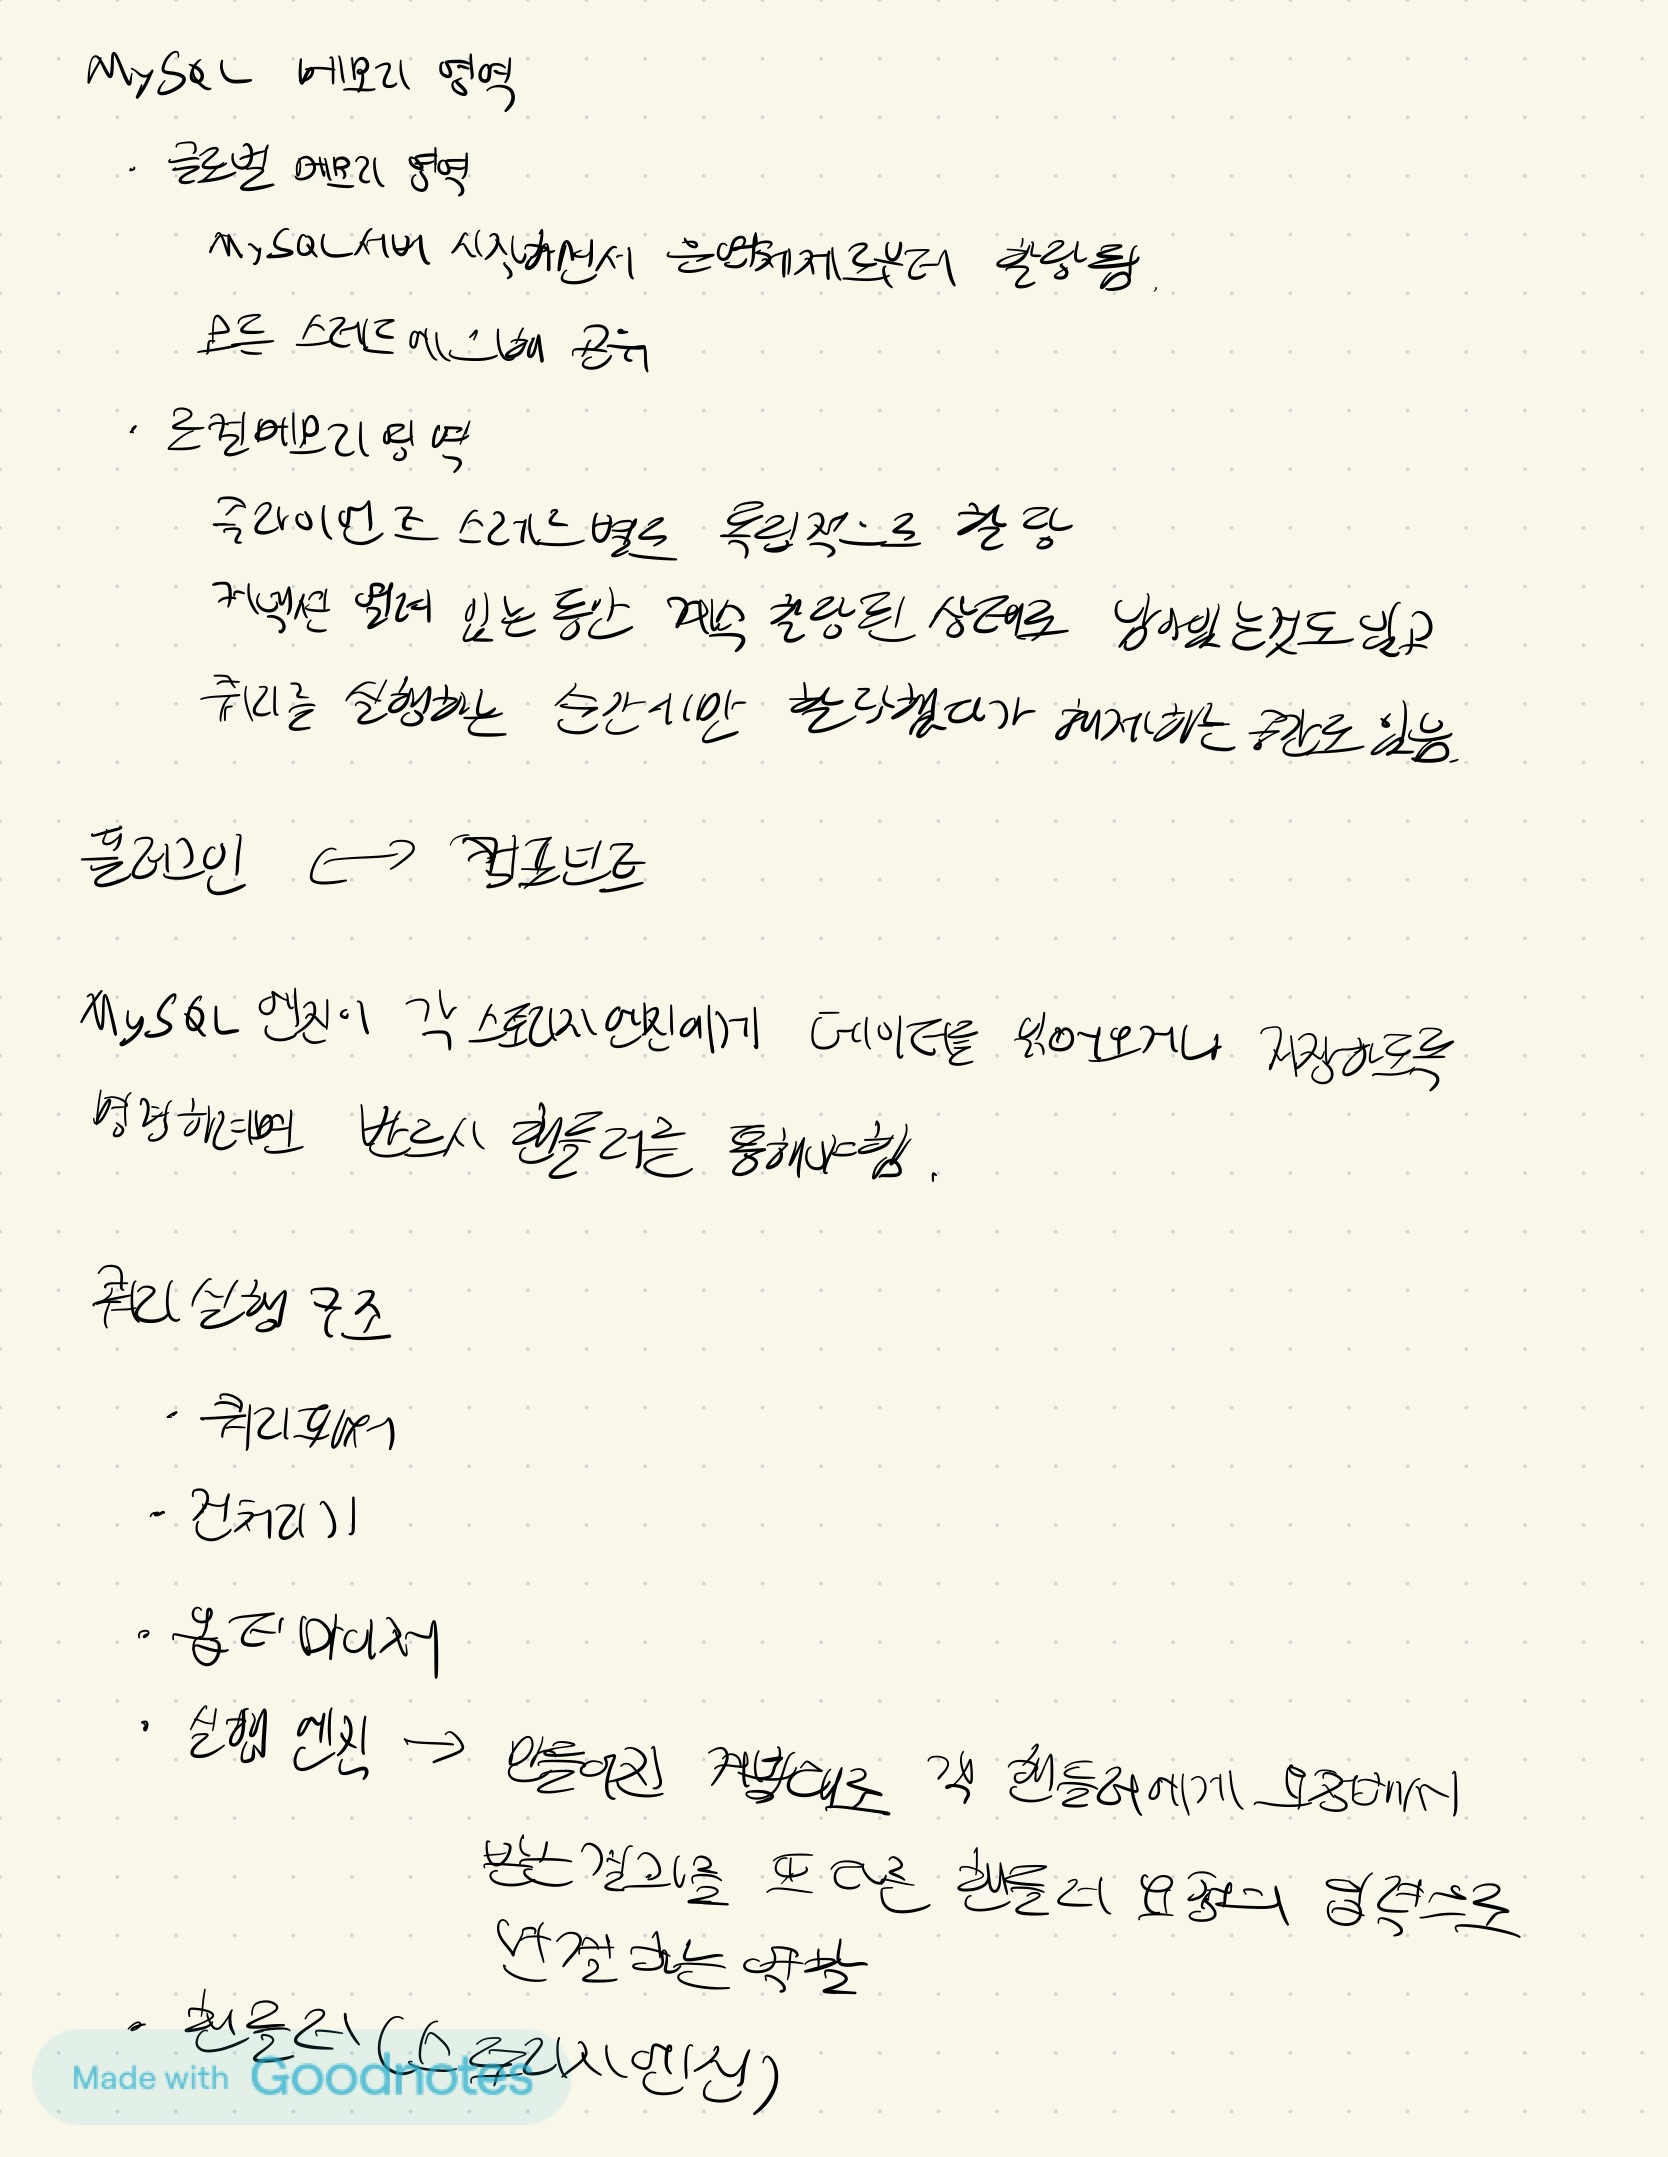 MySQL 메모리 영역
· 글로벌 메모리 영역
MySQL서버 시작하면서 운영체제로부터 할당됨.
모든 스레드에 의해 공유
· 로컬메모리영역
클라이언트 스레드별로 독립적으로 할당
커넥션 열려 있는 동안 계속 할당된 상태로 남아있는것도 있고
쿼리를 실행하는 순간에만 할당했다가 해제하는 공간도 있음.
플러그인 ↔ 컴포넌트
MySQL 엔진이 각 스토리지엔진에게 데이터를 읽어오거나 저장하도록
명령하려면 반드시 핸들러를 통해야함.
쿼리 실행 구조
· 쿼리파서
- 전처리기
· 옵티마이저
· 실행 엔진 → 만들어진 계획대로 각 핸들러에게 요청해서
받는 결과를 또 다른 핸들러 요청의 입력으로
연결하는 역할
· 핸들러 (스토리지엔진)
Made with Goodnotes